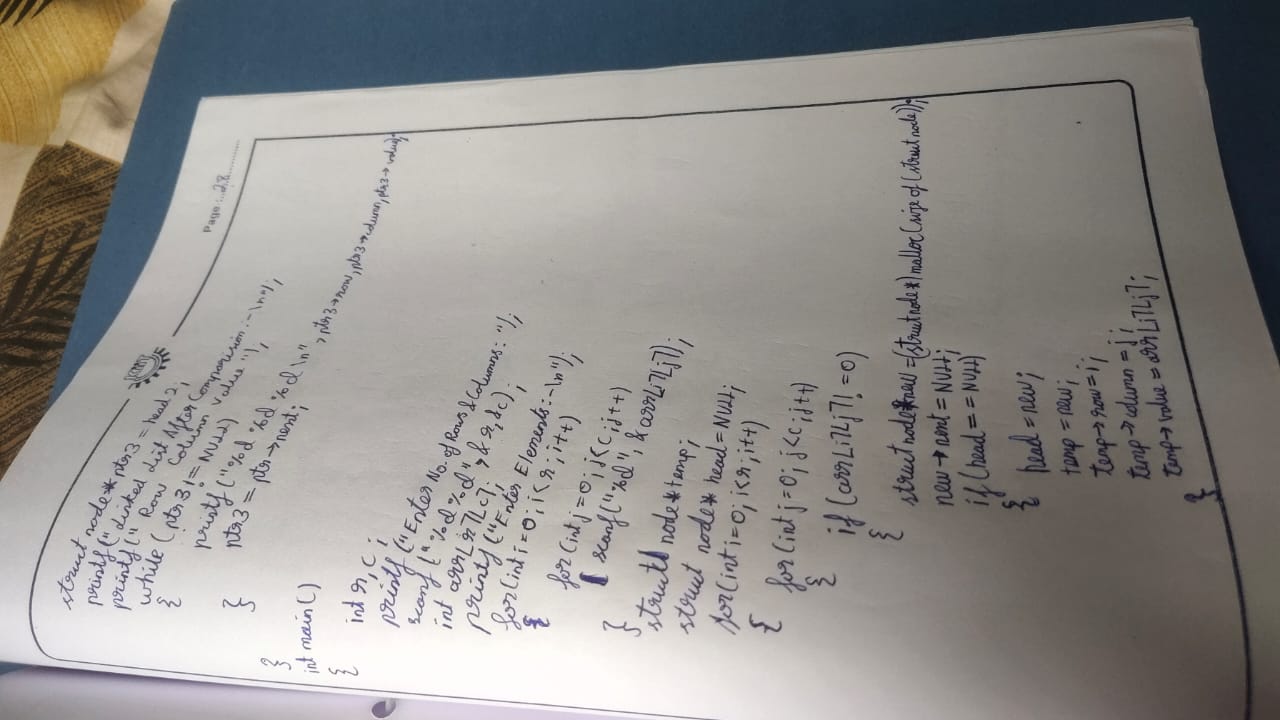 Page :..28..........
struct node* ptr3 = head2;
printf("Linked List After Comparision :-\n");
printf(" Row Column Value ");
while (ptr3 != NULL)
{
printf("%d %d %d \n", ptr3->row, ptr3->column, ptr3->value);
ptr3 = ptr->next;
}
}
int main()
{
int r, c ;
printf("Enter No. of Rows & Columns : ");
scanf("%d %d", &r, &c);
int arr[r][c];
printf("Enter Elements :-\n");
for(int i=0; i<r; i++)
{
for(int j=0; j<c; j++)
scanf("%d", &arr[i][j]);
}
struct node*temp;
struct node* head = NULL;
for(int i=0; i<r; i++)
{
for(int j=0; j<c; j++)
{
if (arr[i][j] != 0)
{
struct node*new = (struct node*) malloc(size of (struct node));
new->next = NULL;
if (head == NULL)
{
head = new;
temp = new;
temp->row = i;
temp->column = j;
temp->value = arr[i][j];
}